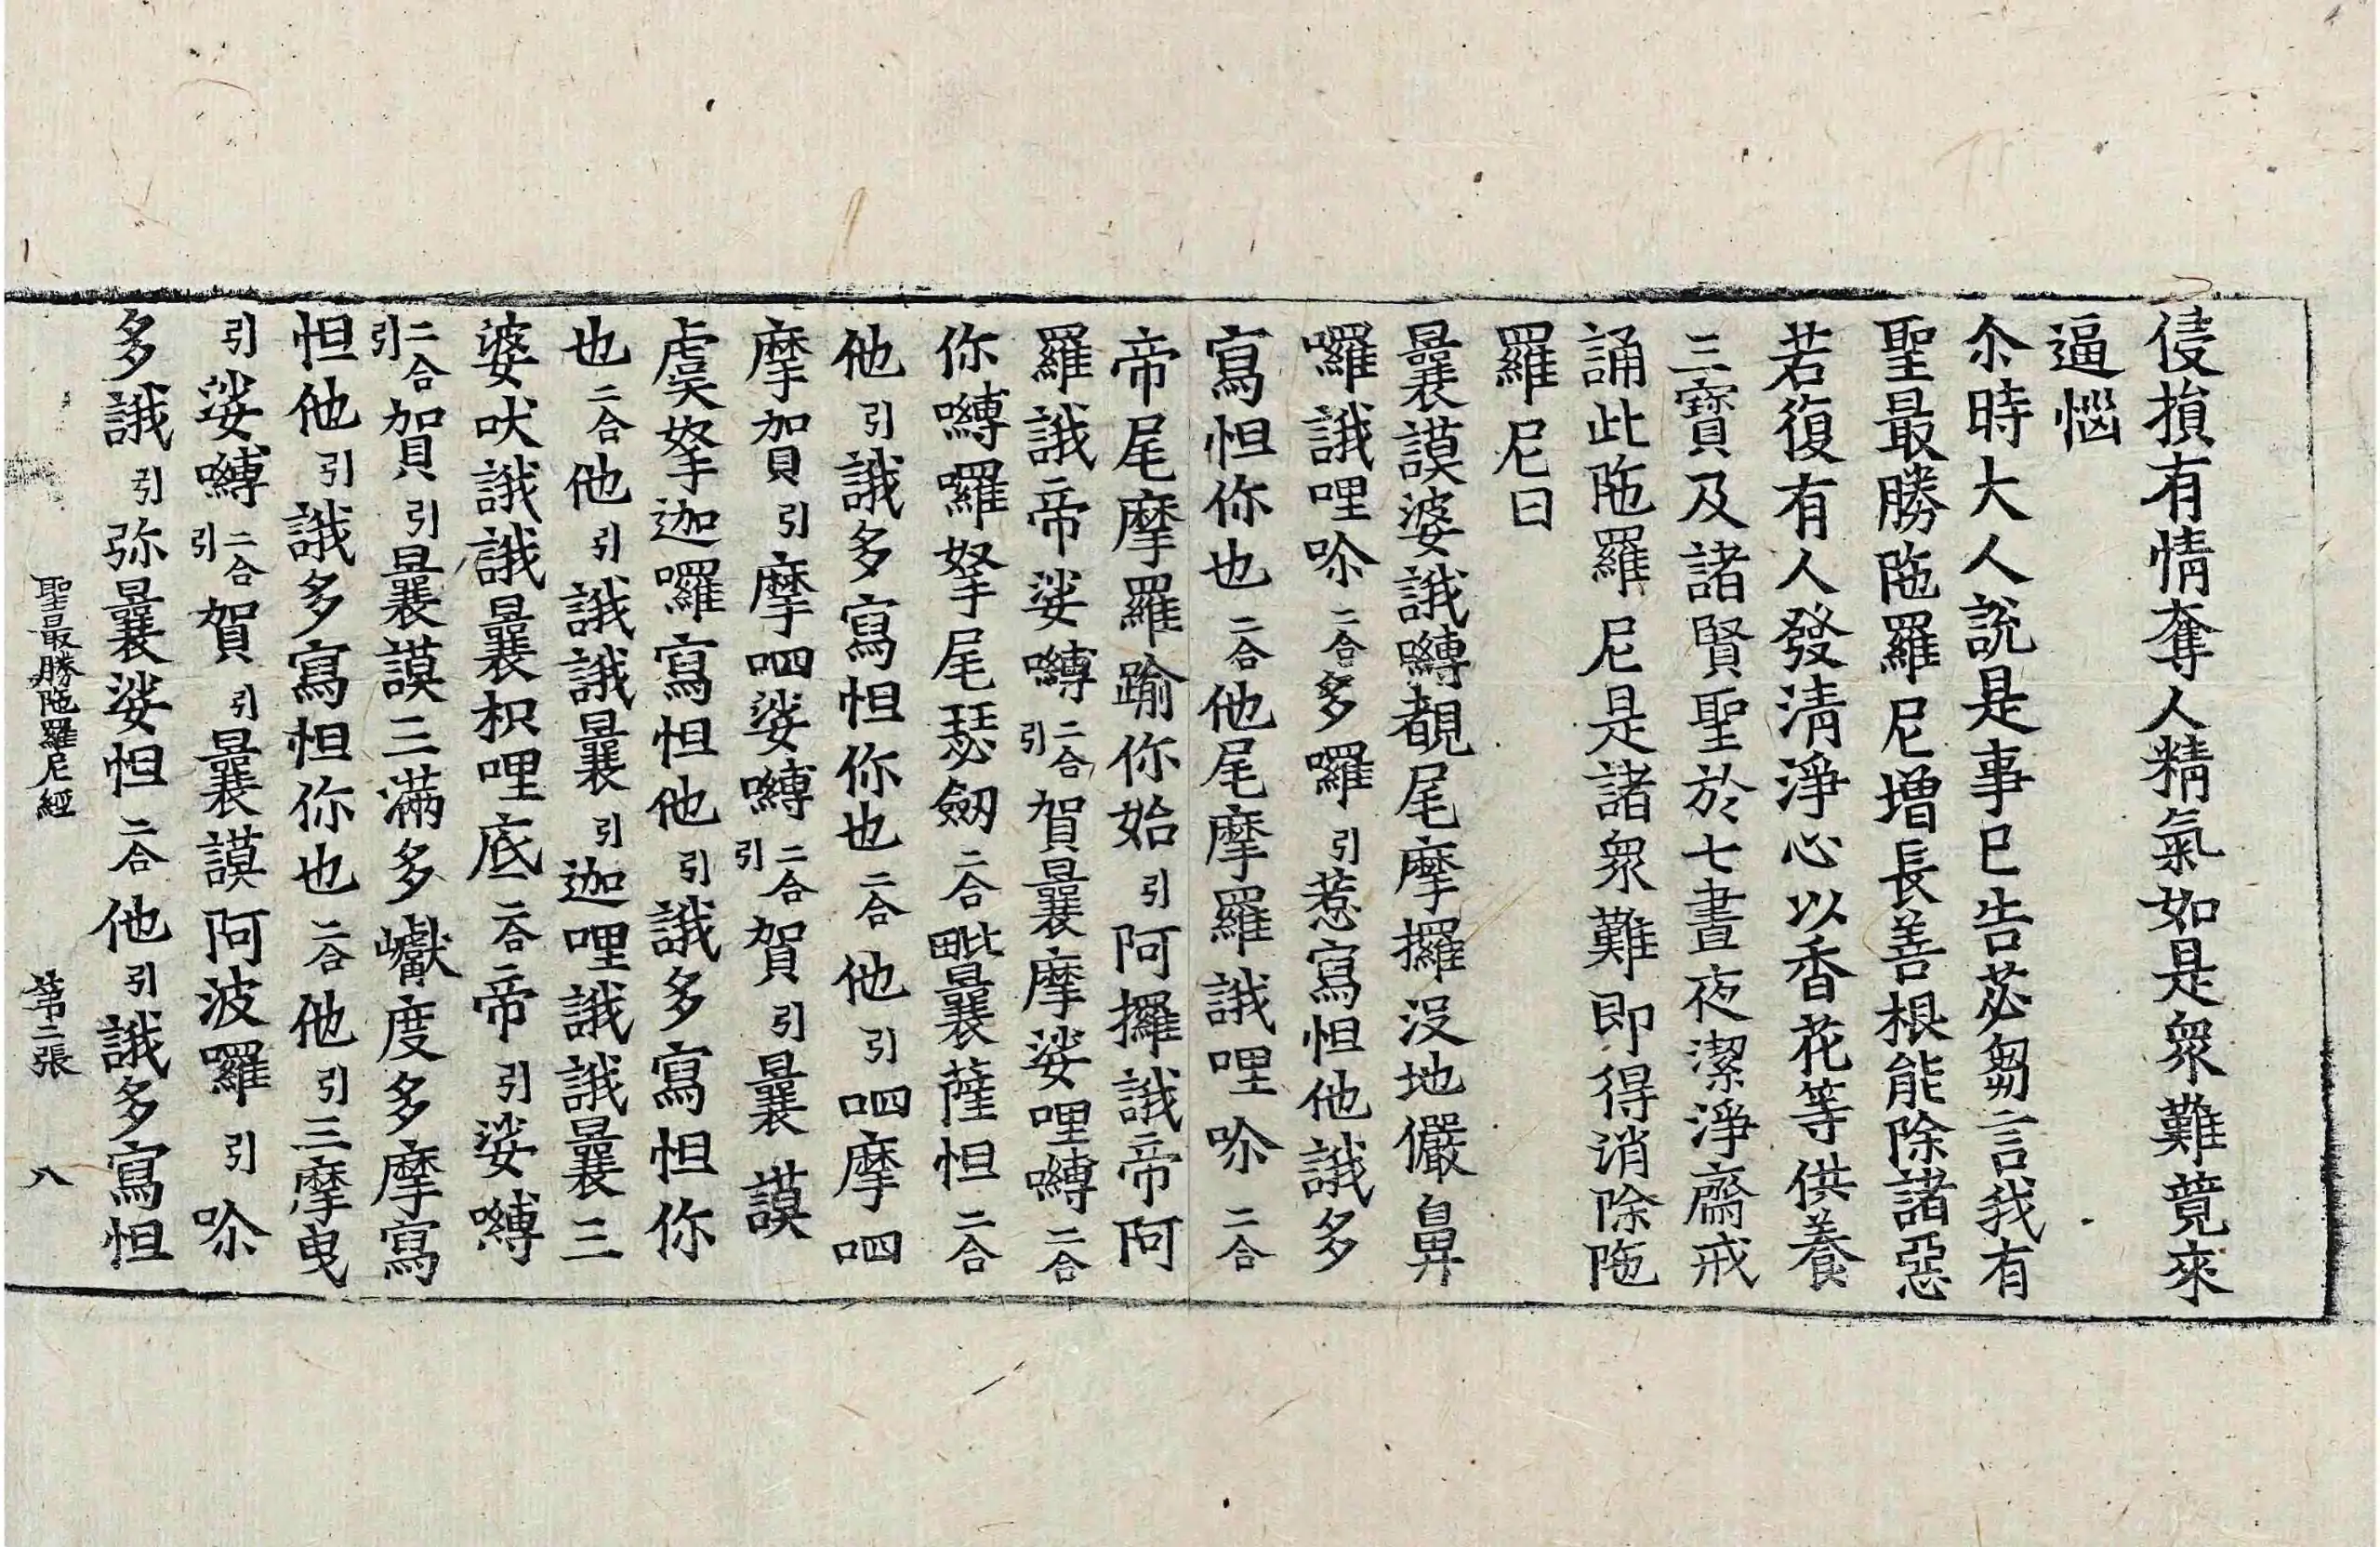 侵損有情奪人精氣如是衆難竟來
逼惱
尒時大人說是事已告苾芻言我有
聖最勝陁羅尼增長善根能除諸惡
若復有人發清淨心以香花等供養
三寶及諸賢聖於七晝夜潔淨齋戒
誦此陁羅尼是諸衆難即得消除陁
羅尼曰
曩謨婆誐嚩覩尾摩攞沒地儼鼻
囉誐哩吤二合多囉引惹寫怛他誐多
寫怛你也二合他尾摩羅誐哩吤二合
帝尾摩羅踰你始引阿攞誐帝阿
羅誐帝娑嚩二合引賀曩摩娑哩嚩二合
你嚩囉拏尾瑟劒二合毗曩薩怛二合
他引誐多寫怛你也二合他引呬摩呬
摩賀引摩呬娑嚩二合引賀引曩謨
虞拏迦囉寫怛他引誐多寫怛你
也二合他引誐誐曩引迦哩誐誐曩三
婆吠誐誐曩枳哩底二合帝引娑嚩
二合引賀引曩謨三滿多巘度多摩寫
怛他引誐多寫怛你也二合他引三摩曳
引娑嚩二合引賀引曩謨阿波羅引吤
多誐引弥曩娑怛二合他引誐多寫怛
聖最勝陁羅尼經 第二張 八